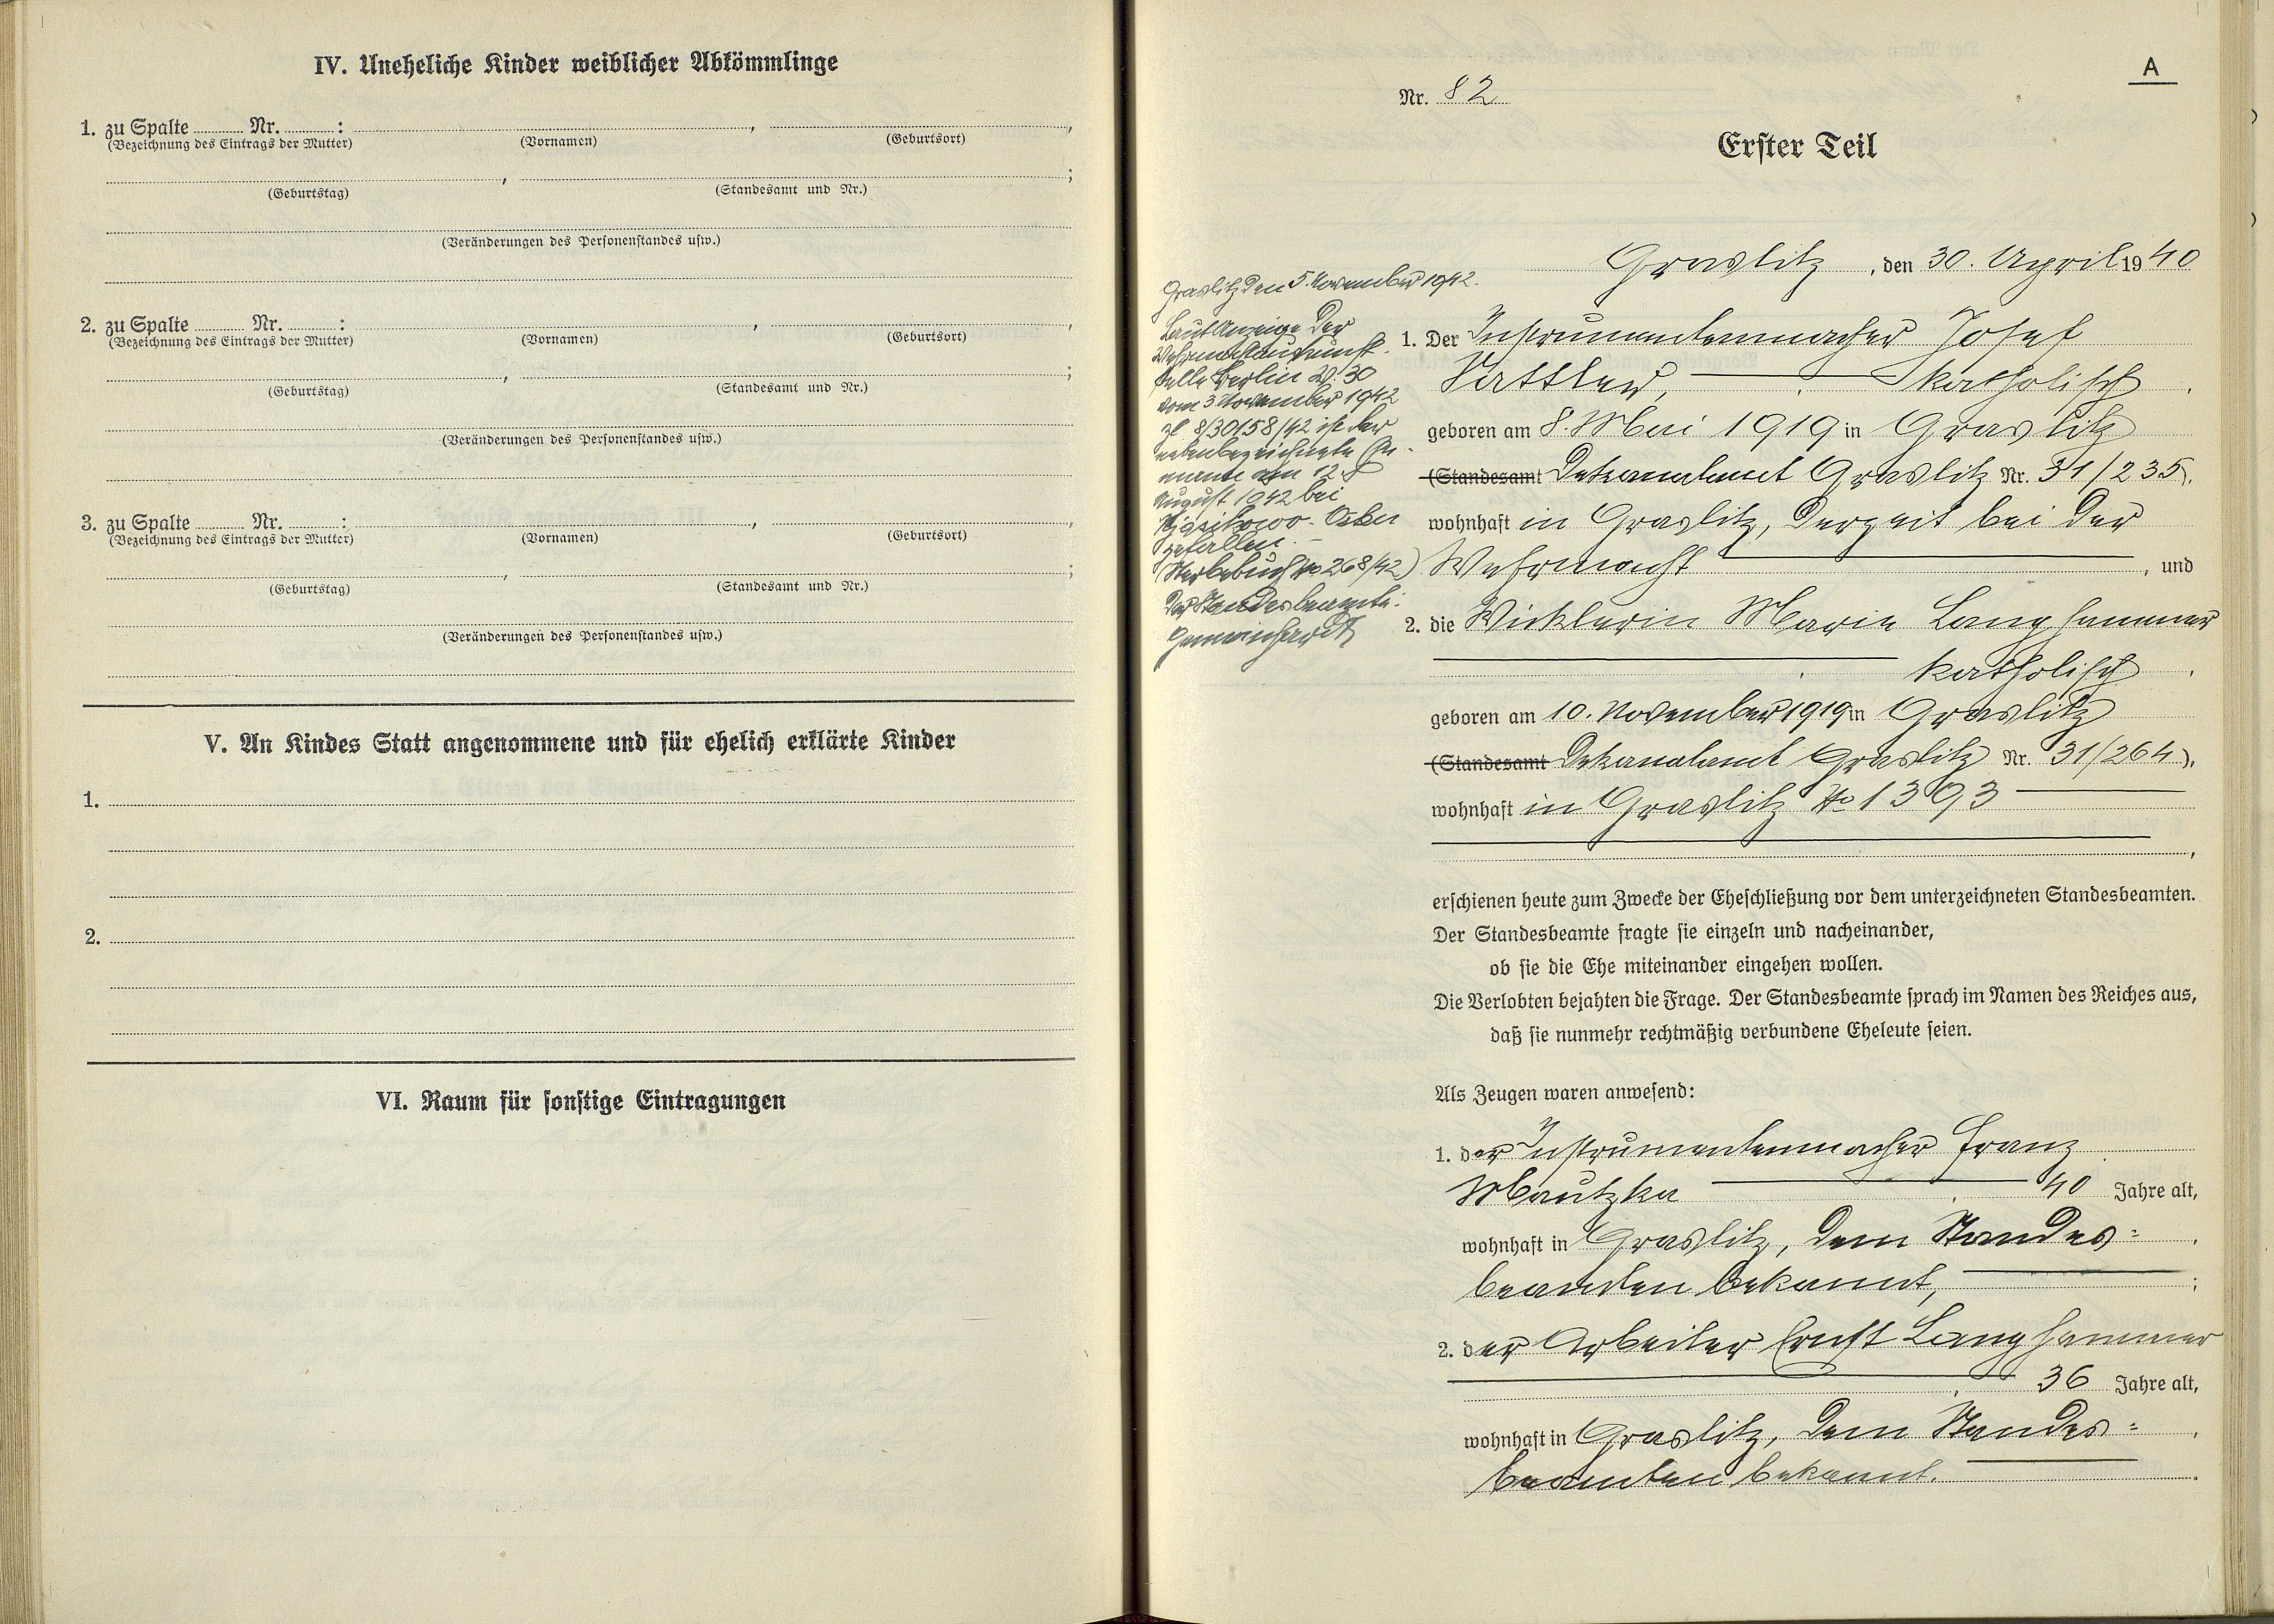 IV. Uneheliche Kinder weiblicher Abkömmlinge
1. zu Spalte ........ Nr. ........ : , ,
(Bezeichnung des Eintrags der Mutter) (Vornamen) (Geburtsort)
, ;
(Geburtstag) (Standesamt und Nr.)
(Veränderungen des Personenstandes usw.)
2. zu Spalte ........ Nr. ........ : , ,
(Bezeichnung des Eintrags der Mutter) (Vornamen) (Geburtsort)
, ;
(Geburtstag) (Standesamt und Nr.)
(Veränderungen des Personenstandes usw.)
3. zu Spalte ........ Nr. ........ : , ,
(Bezeichnung des Eintrags der Mutter) (Vornamen) (Geburtsort)
, ;
(Geburtstag) (Standesamt und Nr.)
(Veränderungen des Personenstandes usw.)
V. An Kindes Statt angenommene und für ehelich erklärte Kinder
1.
2.
VI. Raum für sonstige Eintragungen
A
Nr. 82
Erster Teil
Graslitz, den 30. April 1940
Graslitz den 5. November 1942.
Laut Anzeige der
Wehrmachtauskunft-
stelle Berlin W. 30
vom 3 November 1942
Zl. 8/30158/42 ist der
nebenbezeichnete Ge-
nannte am 12.
August 1942 bei
gefallen. –
(Sterbebuch No 268/42)
Der Standesbeamte:
Gemeinhardt
1. Der Instrumentenmacher Josef
katholisch.
geboren am 8. Mai 1919 in Graslitz
(Standesamt Dekanalamt Graslitz Nr. 31/235),
wohnhaft in Graslitz, derzeit bei der
Wehrmacht, und
2. die Wicklerin Marie Langhammer
katholisch.
geboren am 10. November 1919 in Graslitz
(Standesamt Dekanalamt Graslitz Nr. 31/264),
wohnhaft in Graslitz No 1393
,
erschienen heute zum Zwecke der Eheschließung vor dem unterzeichneten Standesbeamten.
Der Standesbeamte fragte sie einzeln und nacheinander,
ob sie die Ehe miteinander eingehen wollen.
Die Verlobten bejahten die Frage. Der Standesbeamte sprach im Namen des Reiches aus,
daß sie nunmehr rechtmäßig verbundene Eheleute seien.
Als Zeugen waren anwesend:
1. der Instrumentenmacher Franz
Mautzka 40 Jahre alt,
wohnhaft in Graslitz, dem Standes=
beamten bekannt, ;
2. der Arbeiter Ernst Langhammer
36 Jahre alt,
wohnhaft in Graslitz, dem Standes=
beamten bekannt.